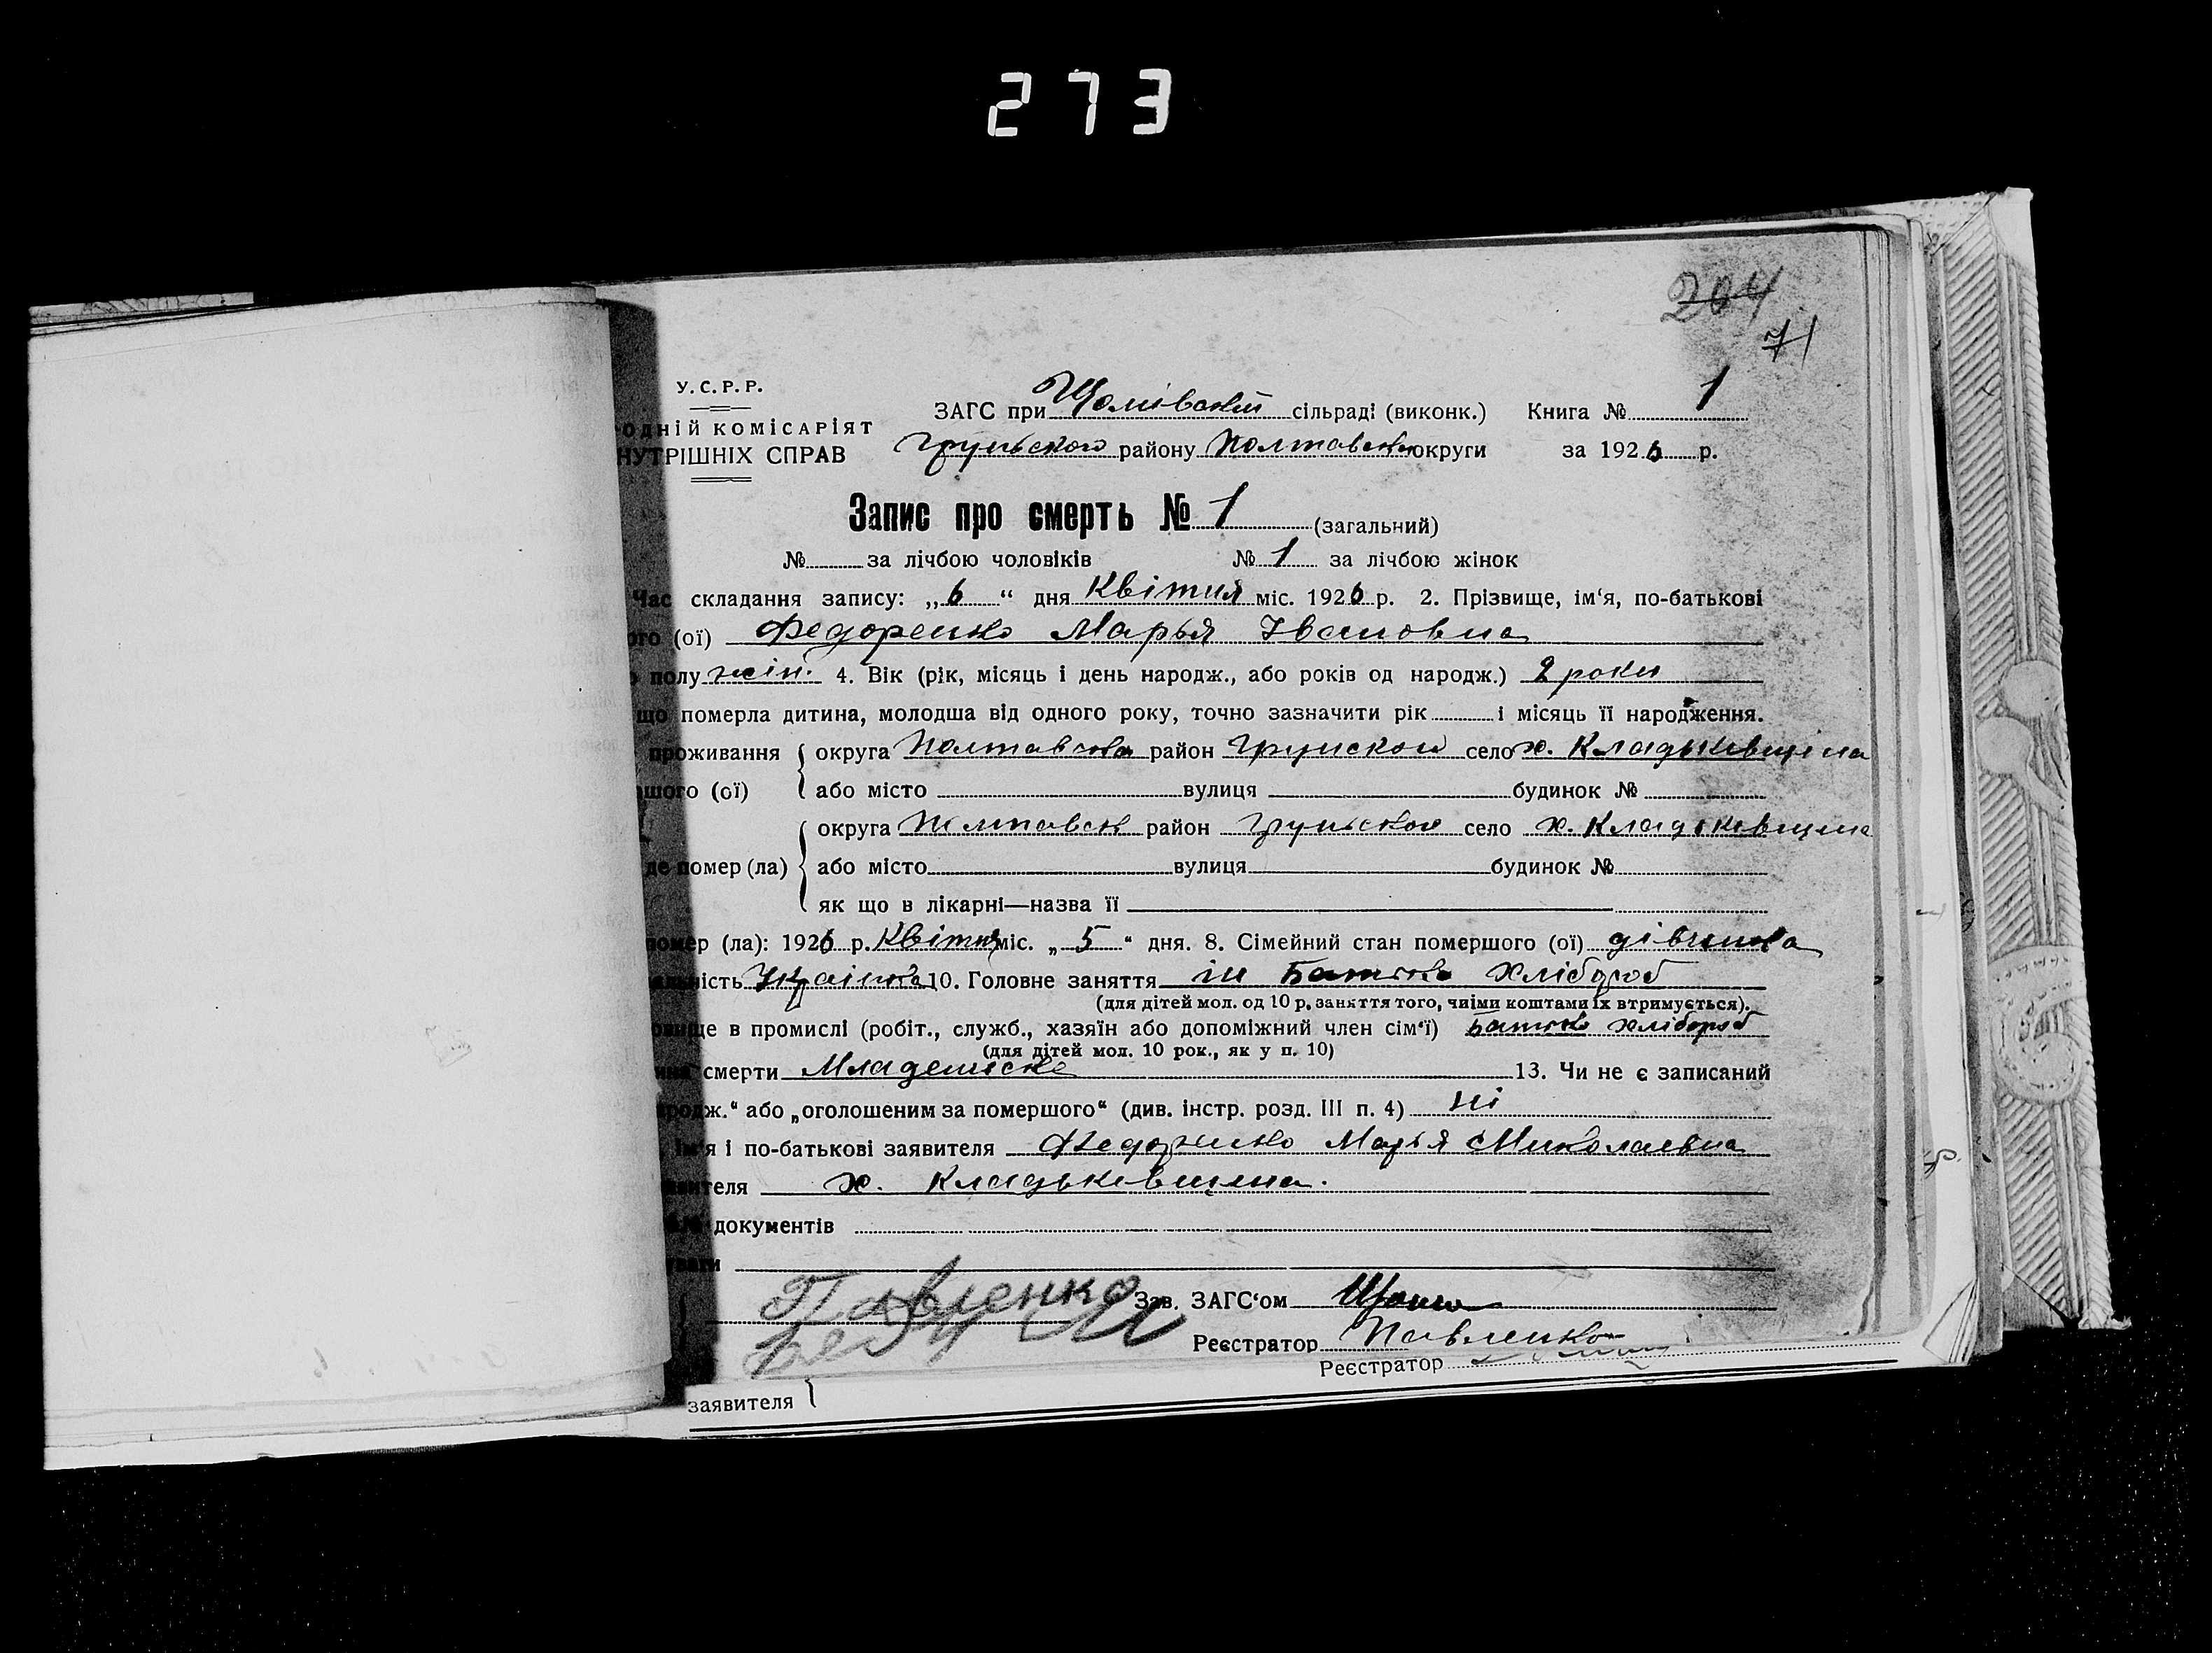 273
204
71
У.С.Р.Р.
ОДНІЙ КОМІСАРІЯТ
НУТРІШНІХ СПРАВ
ЗАГС при сільраді (виконк.) Книга № 1
Грунського району Полтавськ округи за 1926 р.
Запис про смерть № 1 (загальний)
№ за лічбою чоловіків № 1 за лічбою жінок
Час складання запису: „6“ дня Квітня міс. 1926 р. 2. Прізвище, ім‘я, по-батькові
ого (ої) Федоренко Марья Івановна
полу жін. 4. Вік (рік, місяць і день народж., або років од народж.) 2 роки
що померла дитина, молодша від одного року, точно зазначити рік і місяць її народження.
проживання округа Полтавська район Грунською село х. Кладьківщина
шого (ої) або місто вулиця будинок №
округа Полтавськ район Грунською село х. Кладьківщина
де помер (ла) або місто вулиця будинок №
як що в лікарні—назва її
помер (ла): 1926 р. Квітня міс. „5“ дня. 8. Сімейний стан помершого (ої) дівчина
ність Українка 10. Головне заняття Батько хлібороб
(для дітей мол. од 10 р. заняття того, чиїми коштами їх втримується).
вище в промислі (робіт., служб., хазяїн або допоміжний член сім‘ї) Батько хлібороб
(для дітей мол. 10 рок., як у п. 10)
смерти Младенська 13. Чи не є записаний
родж.“ або „оголошеним за помершого“ (див. інстр. розд. III п. 4) ні
ім‘я і по-батькові заявителя Федоренко Марья Миколаевна
вителя х. Кладьківщина.
документів
Павленко
Зав. ЗАГС‘ом
Реєстратор Павленко
Реєстратор
заявителя